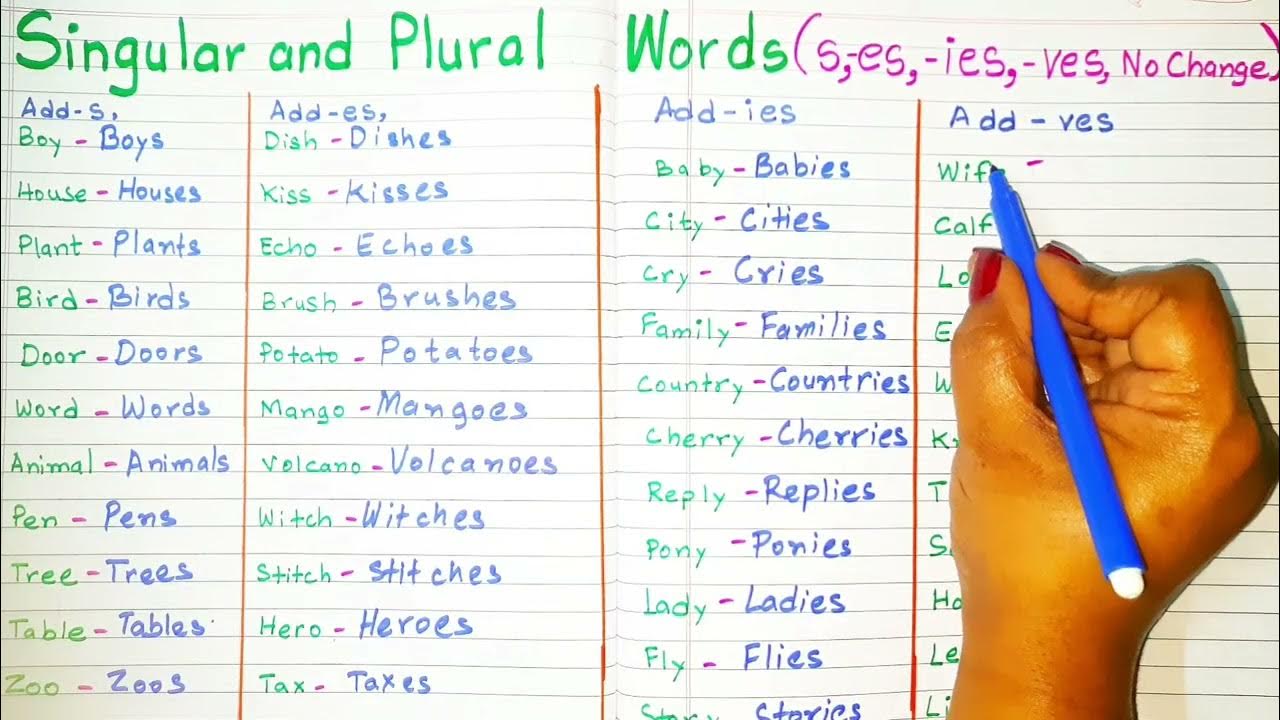 Singular and Plural Words (s,-es,-ies,-ves, No Change)
Add-s,
Boy - Boys
House - Houses
Plant - Plants
Bird - Birds
Door - Doors
Word - Words
Animal - Animals
Pen - Pens
Tree - Trees
Table - Tables
Zoo - Zoos
Add-es,
Dish - Dishes
Kiss - Kisses
Echo - Echoes
Brush - Brushes
Potato - Potatoes
Mango - Mangoes
Volcano - Volcanoes
Witch - Witches
Stitch - Stitches
Hero - Heroes
Tax - Taxes
Add-ies
Baby - Babies
City - Cities
Cry - Cries
Family - Families
Country - Countries
Cherry - Cherries
Reply - Replies
Pony - Ponies
Lady - Ladies
Fly - Flies
Story - Stories
Add-ves
Wife -
Calf